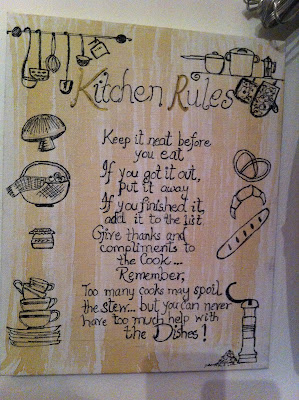 Kitchen Rules
Keep it neat before
you eat
If you got it out,
put it away
If you finished it,
add it to the list
Give thanks and
compliments to
the Cook...
Remember,
Too many cooks may spoil
the stew... but you can never
have too much help with
the Dishes!